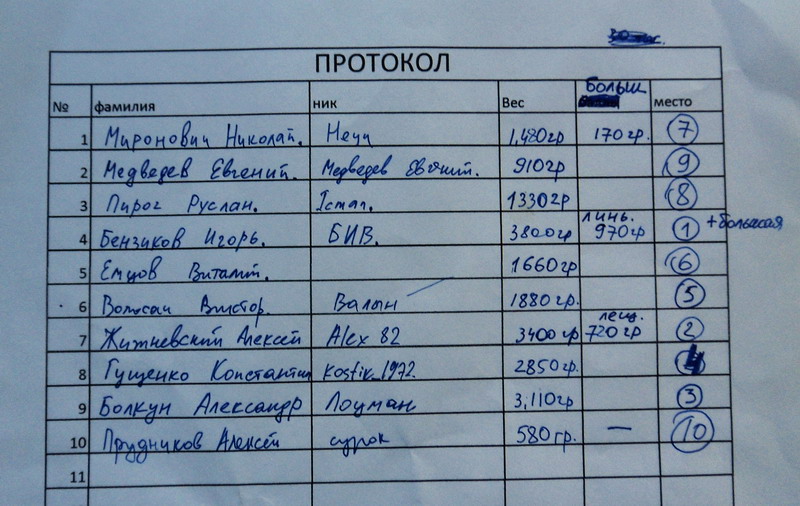 ПРОТОКОЛ
№ фамилия ник Вес больш место
1 Миронович Николай. 1,480гр 170гр. 7
2 Медведев Евгений. Медведев Евгений. 910гр 9
3 Пирог Руслан. 1330гр 8
4 Бензиков Игорь. БИВ. 3800гр линь. 970гр 1 +большая
5 Виталий. 1660гр 6
6 Виктор. Валын 1880гр. 5
7 Житневский Алексей Alex 82 3400гр лещ. 720гр 2
8 Гущенко Константин kostik_1972. 2850гр. 4
9 Болкун Александр Лоцман 3,110гр 3
10 Прудников Алексей сурок 580гр. — 10
11